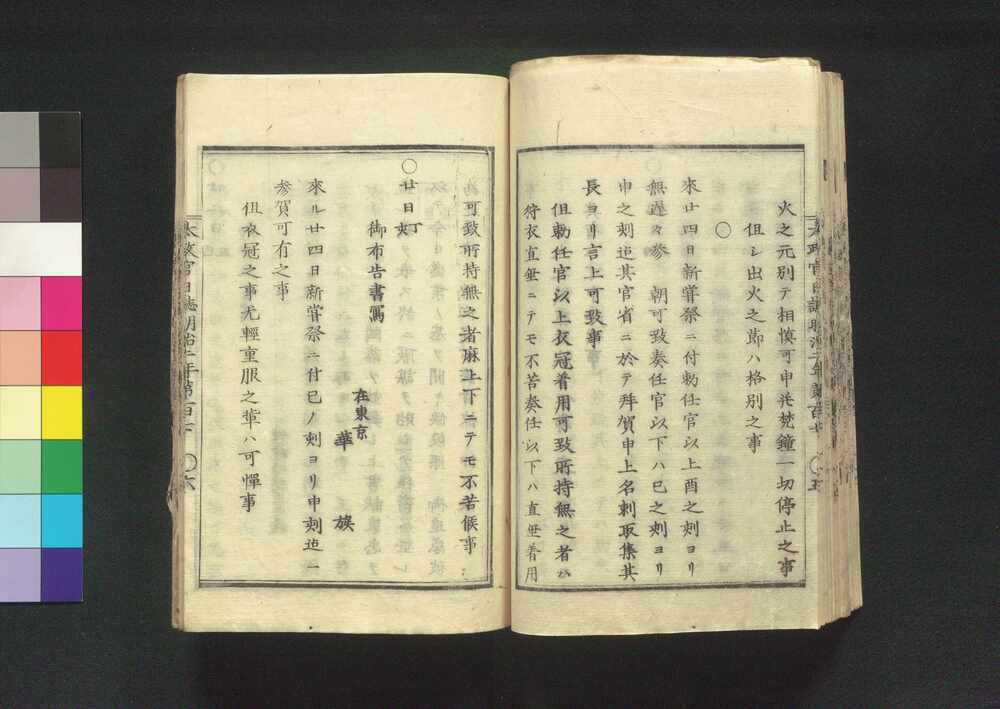 火之元別テ相愼可申并梵鐘一切停止之事
但シ出火之節ハ格別之事
○
來廿四日新嘗祭ニ付勅任官以上酉之刻ヨリ
無遲々參　朝可致奏任官以下ハ巳之刻ヨリ
申之刻迄其官省ニ於テ拜賀申上名刺取集其
長ヨリ言上可致事
但勅任官以上衣冠着用可致所持無之者ハ
狩衣直垂ニテモ不苦奏任以下ハ直垂着用
太政官日誌明治二年第百七　○五
可致所持無之者麻上下ニテモ不苦候事
○廿日　丁
御布告書寫
在東京
華　族
來ル廿四日新嘗祭ニ付巳ノ刻ヨリ申刻迄ニ
參賀可有之事
但衣冠之事尤輕重服之輩ハ可憚事
太政官日誌明治二年第百七　○六